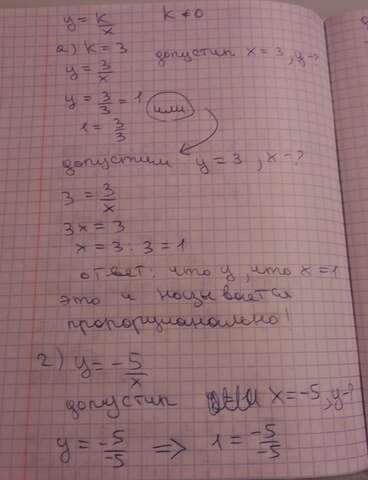 y = k/x   k ≠ 0
а) k = 3   допустип x = 3, y - ?
y = 3/x
y = 3/3 = 1   или
1 = 3/3
допустим   y = 3, x - ?
3 = 3/x
3x = 3
x = 3 : 3 = 1
ответ: что y, что x = 1
это и называется
пропорционально!
2) y = -5/x
допустип   x = -5, y - ?
y = -5/-5 ⇒ 1 = -5/-5